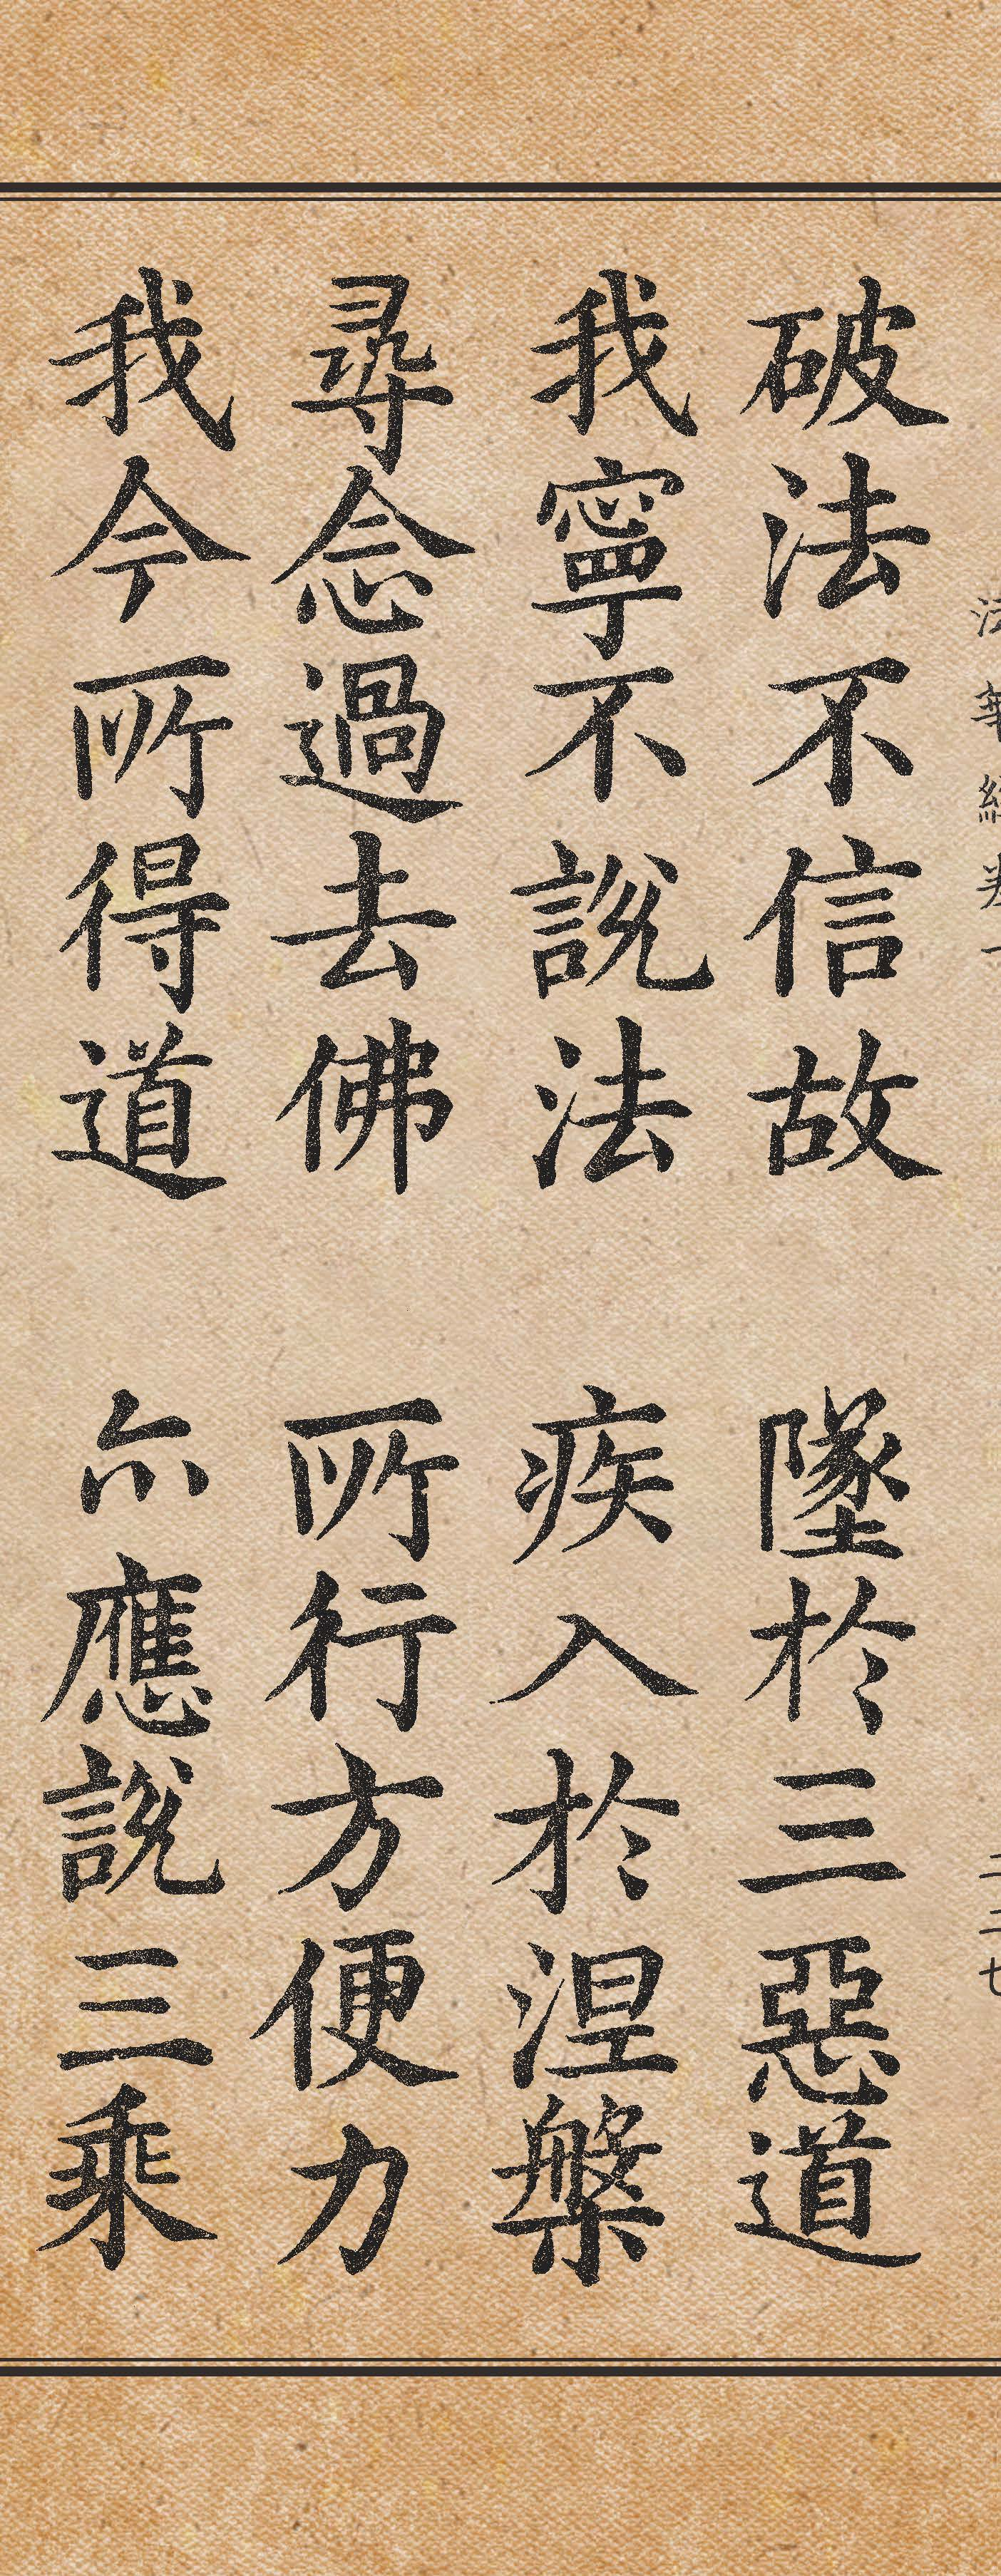 破法不信故 墜於三惡道
我寧不說法 疾入於涅槃
尋念過去佛 所行方便力
我今所得道 亦應說三乘